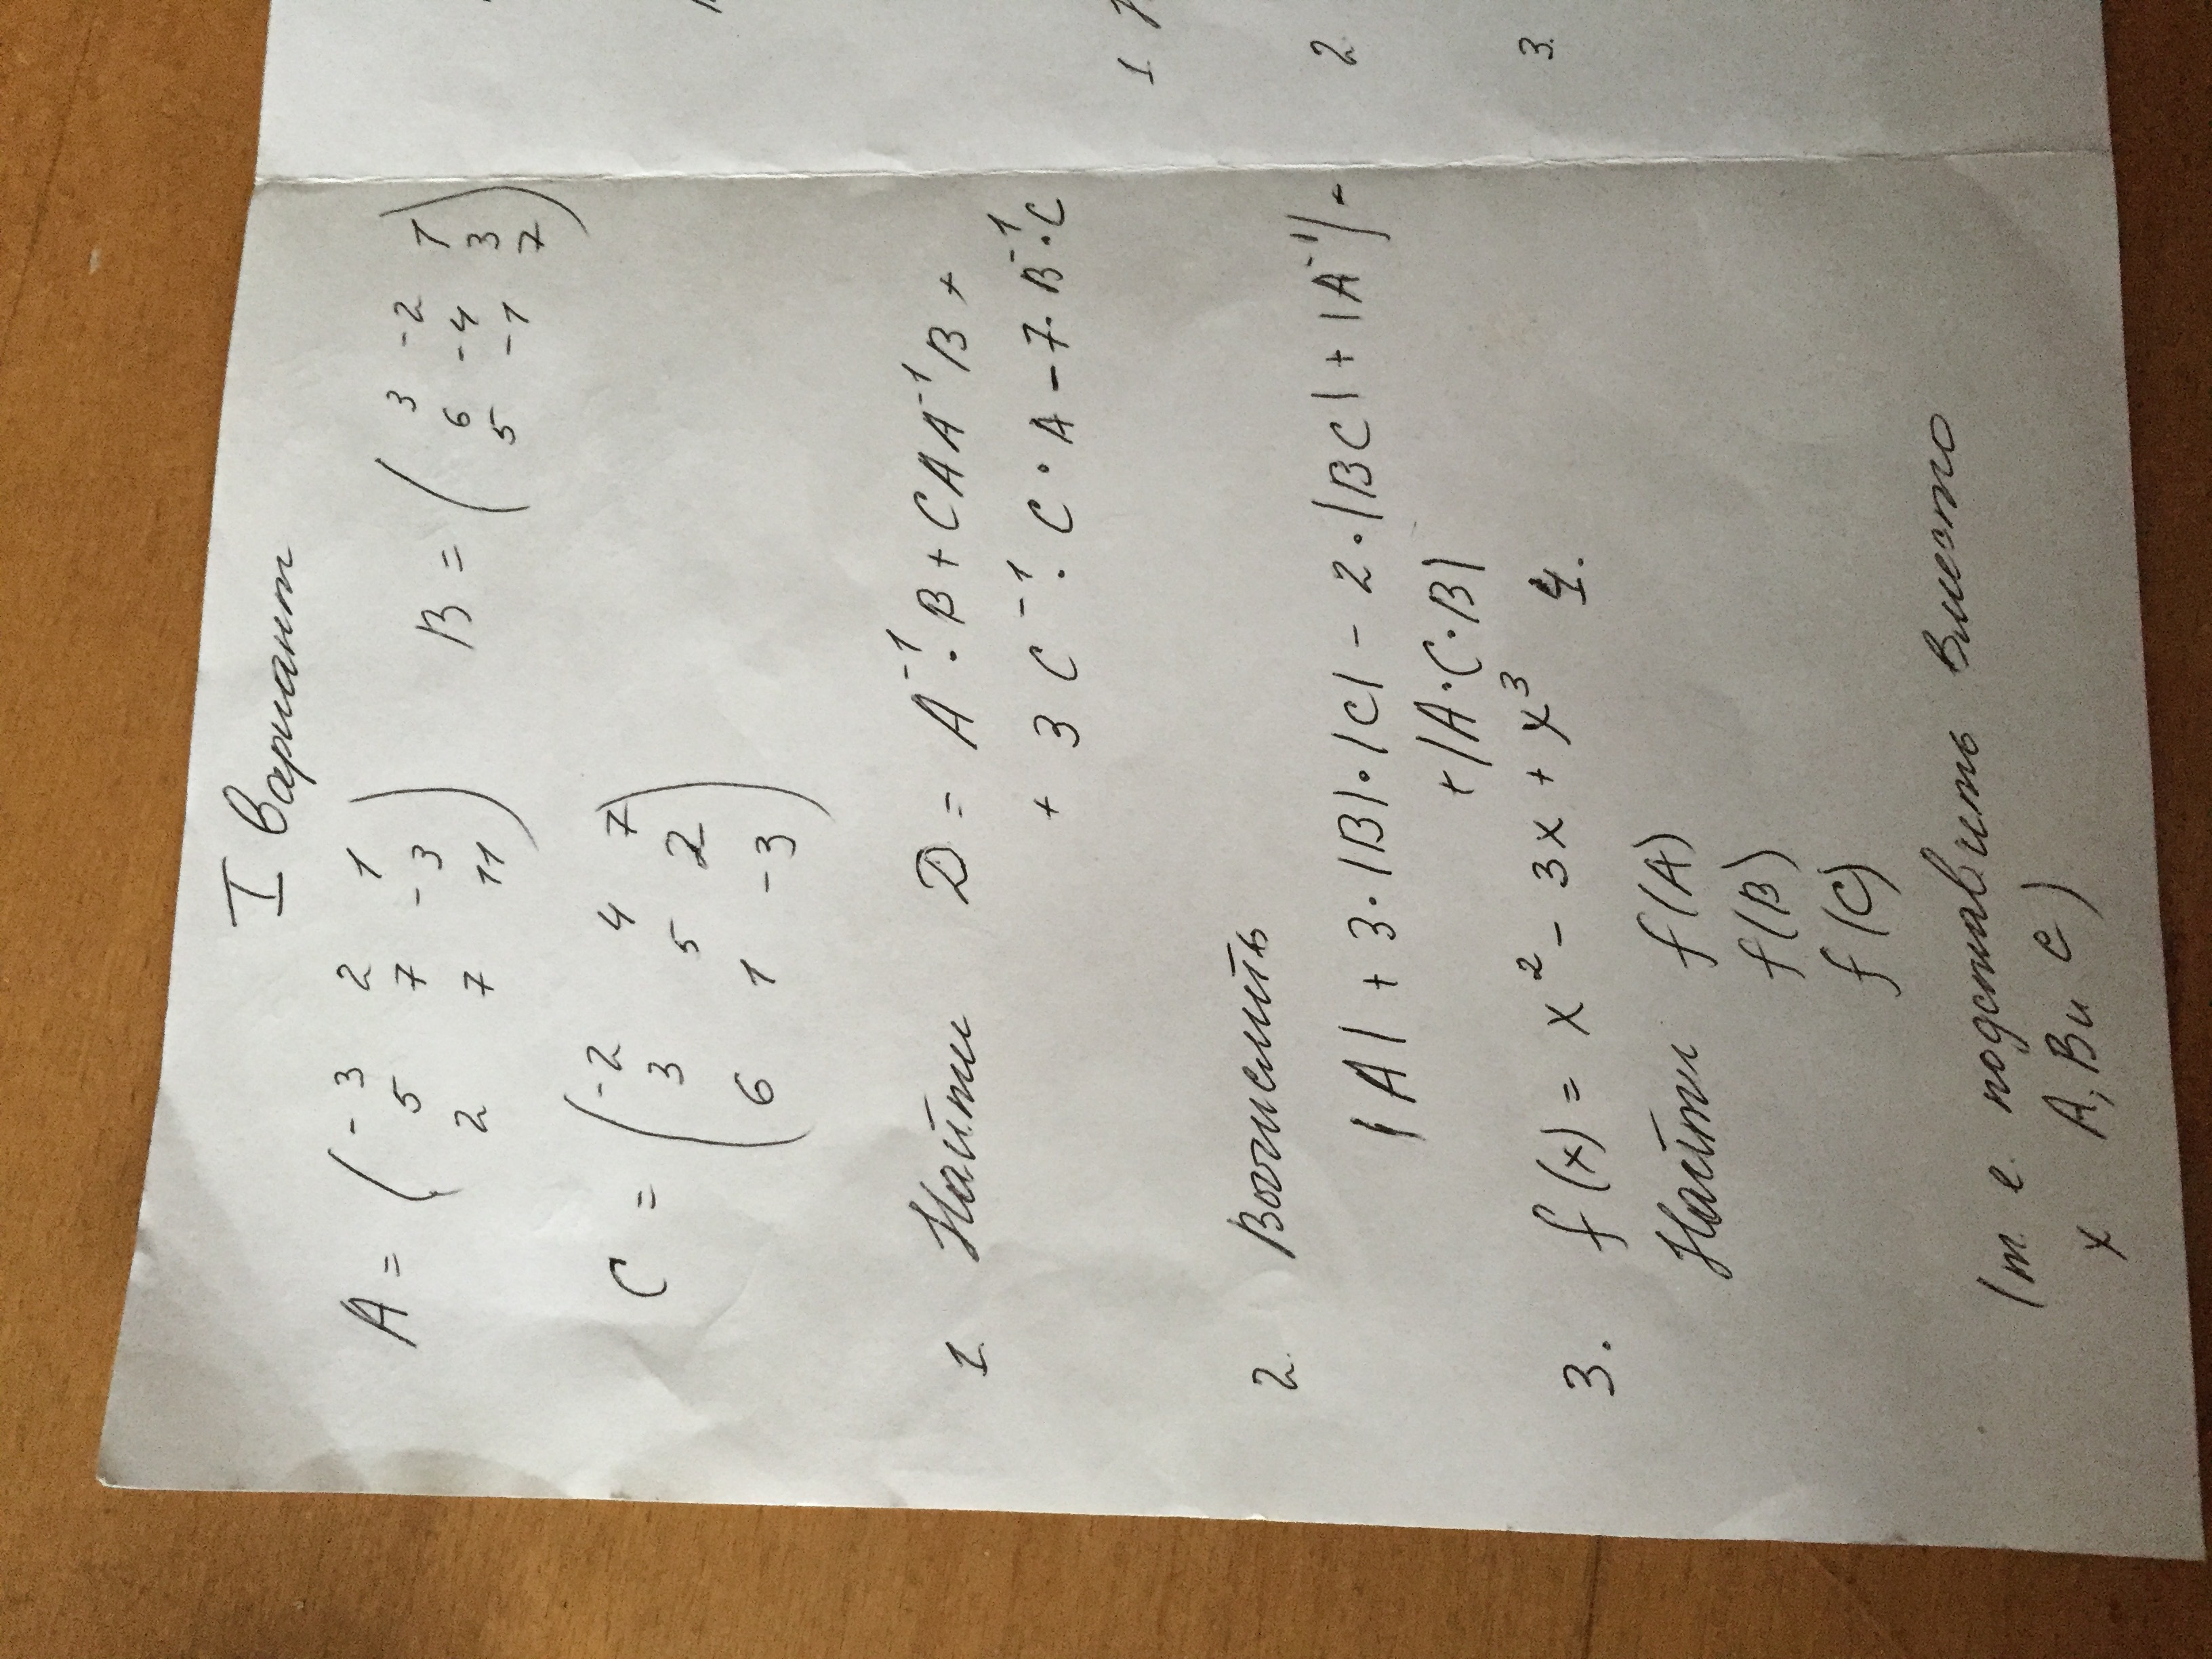 I Вариант
A = ( -3 2 1 B = ( 3 -2 1
5 7 -3 6 -4 3
2 7 11 ) 5 -1 7 )
C = ( -2 4 7
3 5 2
6 1 -3 )
1. Найти D = A⁻¹·B + CAA⁻¹B +
+ 3C⁻¹·C·A - 7·B⁻¹·C
2. Вычислить
|A| + 3·|B|·|C| - 2·|BC| + |A⁻¹| -
+ |A·C·B|
3. f(x) = x² - 3x + x³ 4.
Найти f(A)
f(B)
f(C)
(т е подставить вместо
x A, B и C)
1.
2
3.